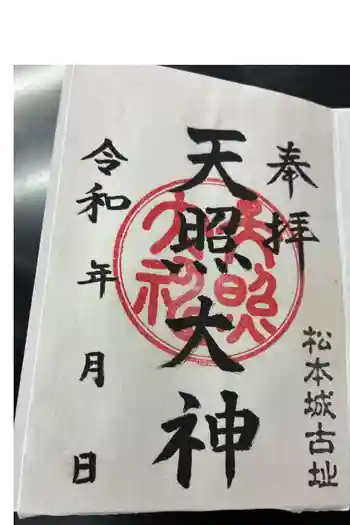 奉拝
松本城古址
天照大神
天照
大神
令和 年 月 日